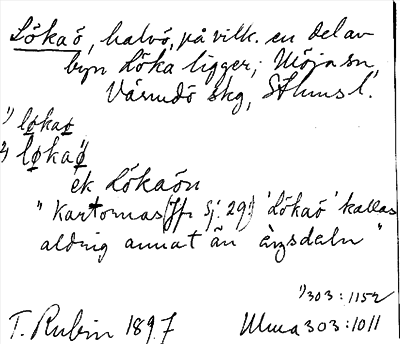 Lökaö, halvö, på vilk. en del av
byn Löka ligger; Möja sn,
Värmdö skg, Sthms l.
1) løkaø
2) løkaø
ek Lökaön
"Kartornas (Jfr Sj. 29!) 'Lökaö' kallas
aldrig annat än ängsdeln"
1) 303:1152
T. Rubin 1897 Ulma 303:1011